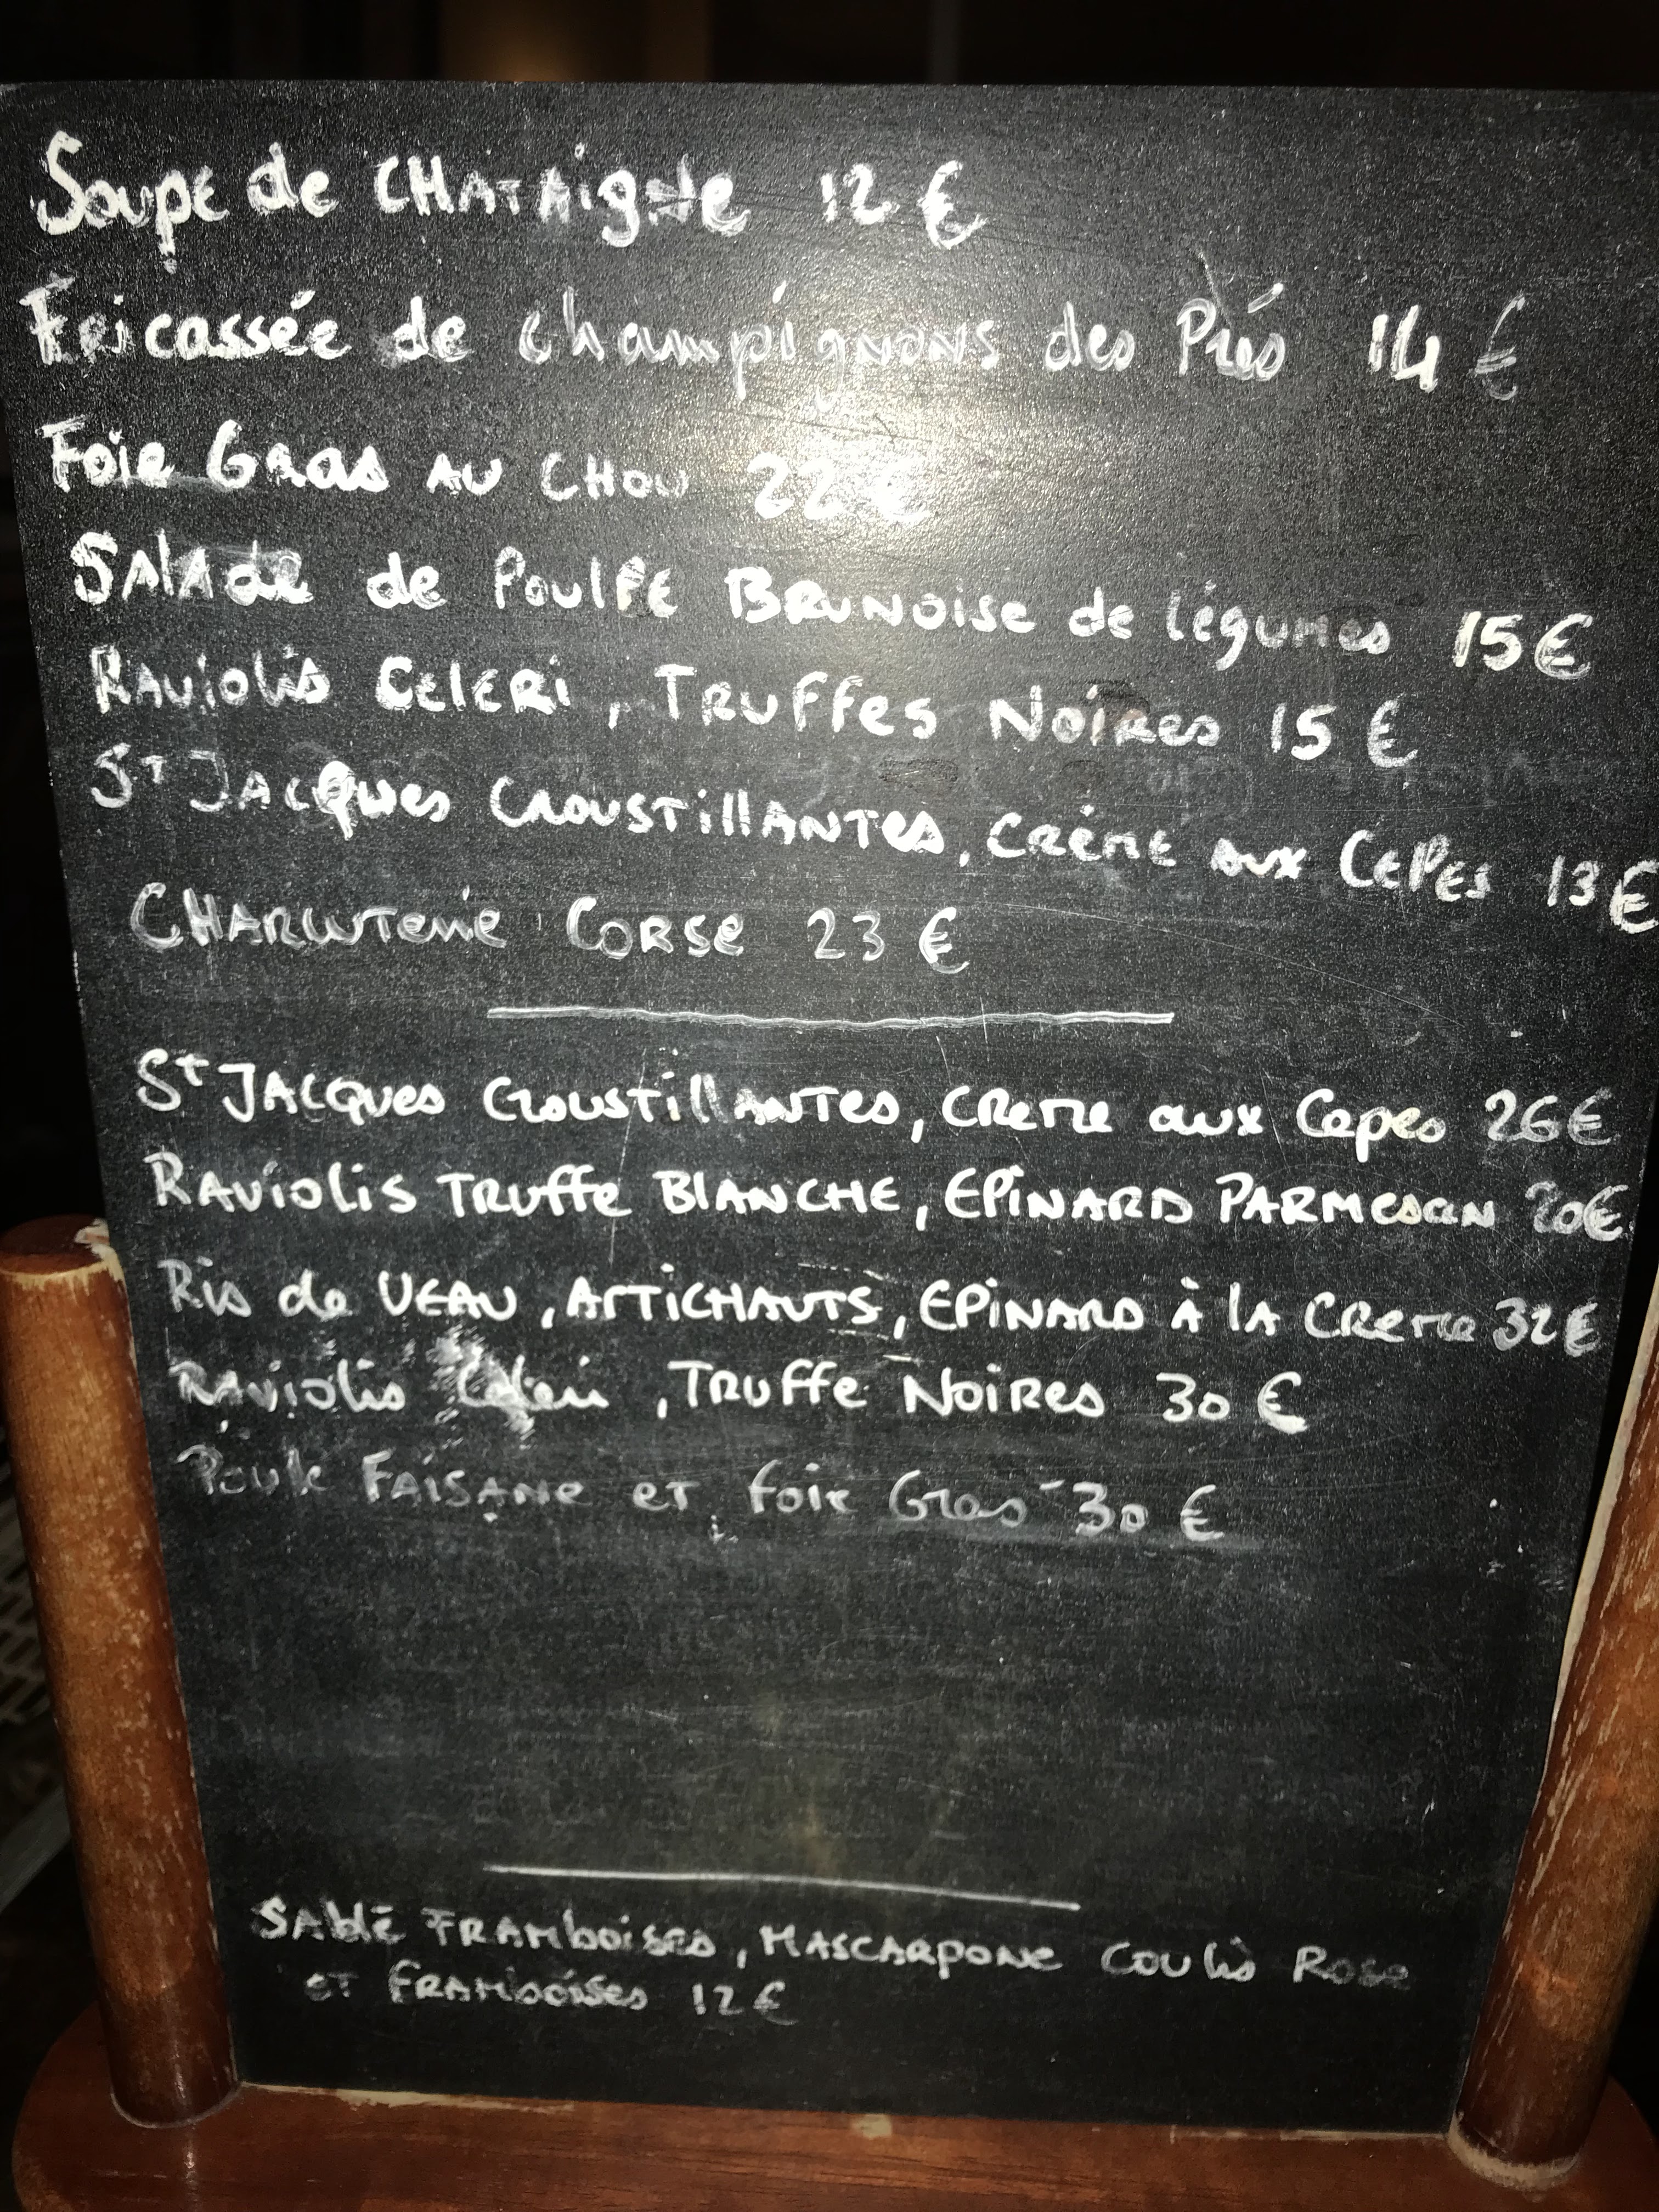 Soupe de CHATAIgNe 12 €
Fricassée de champignons des Prés 14 €
Foie Gras AU CHOU 22 €
SALAde de PoulPE BRUNoise de légumes 15€
RAViolis CELERi, TRUFFes NoiRes 15 €
St JACQues CROUSTillANTes, CRèME AUX CePEs 13€
CHARCUTERIE CORSE 23 €
St JACQues CROUSTillANTes, CREME aux Cepes 26€
RAViolis TRUffe BlANCHE, EPiNARD PARMesan 20€
Ris de VEAU, ARTiCHAUTS, EPiNARD À lA CREME 32€
RAViolis Céleri, TRUffe NoiRes 30 €
Poule FAiSANe eT foie Gras 30 €
SAblé FRAMboises, MASCARPONE Coulis Rose
eT FRAMboises 12€